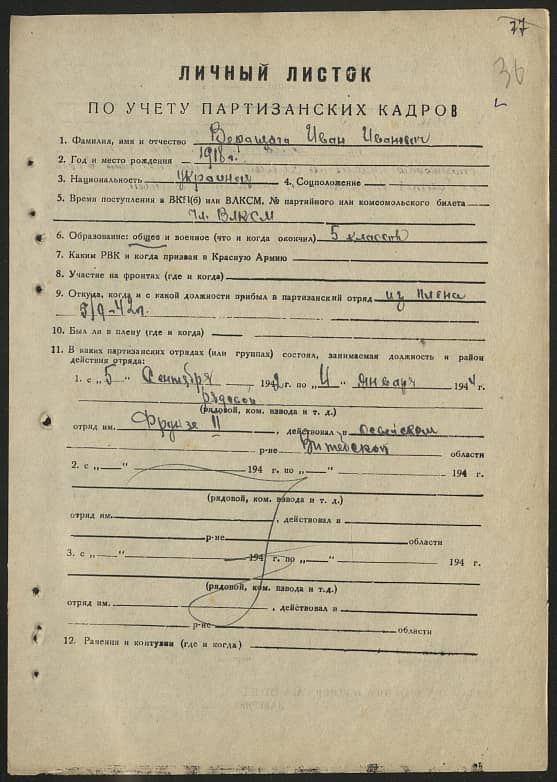 77
36
ЛИЧНЫЙ ЛИСТОК
ПО УЧЕТУ ПАРТИЗАНСКИХ КАДРОВ
1. Фамилия, имя и отчество Веращага Иван Иванович
2. Год и место рождения 1918 г.
3. Национальность Украинец 4. Соцположение
5. Время поступления в ВКП(б) или ВЛКСМ, № партийного или комсомольского билета
Чл. ВЛКСМ
6. Образование: общее и военное (что и когда окончил) 5 классов
7. Каким РВК и когда призван в Красную Армию
8. Участие на фронтах (где и когда)
9. Откуда, когда и с какой должности прибыл в партизанский отряд из плена
5/9-42 г.
10. Был ли в плену (где и когда)
11. В каких партизанских отрядах (или группах) состоял, занимаемая должность и район
действия отряда:
1. с „5“ Сентября 1942 г. по „4“ января 1944 г.
рядовой
(рядовой, ком. взвода и т. д.)
отряд им. Фрунзе II, действовал в Освейском
р-не Витебской области
2. с „ “ 194 г. по „ “ 194 г.
(рядовой, ком. взвода и т. д.)
отряд им. , действовал в
р-не области
3. с „ “ 194 г. по „ “ 194 г.
(рядовой, ком. взвода и т.д.)
отряд им. , действовал в
р-не области
12. Ранения и контузии (где и когда)